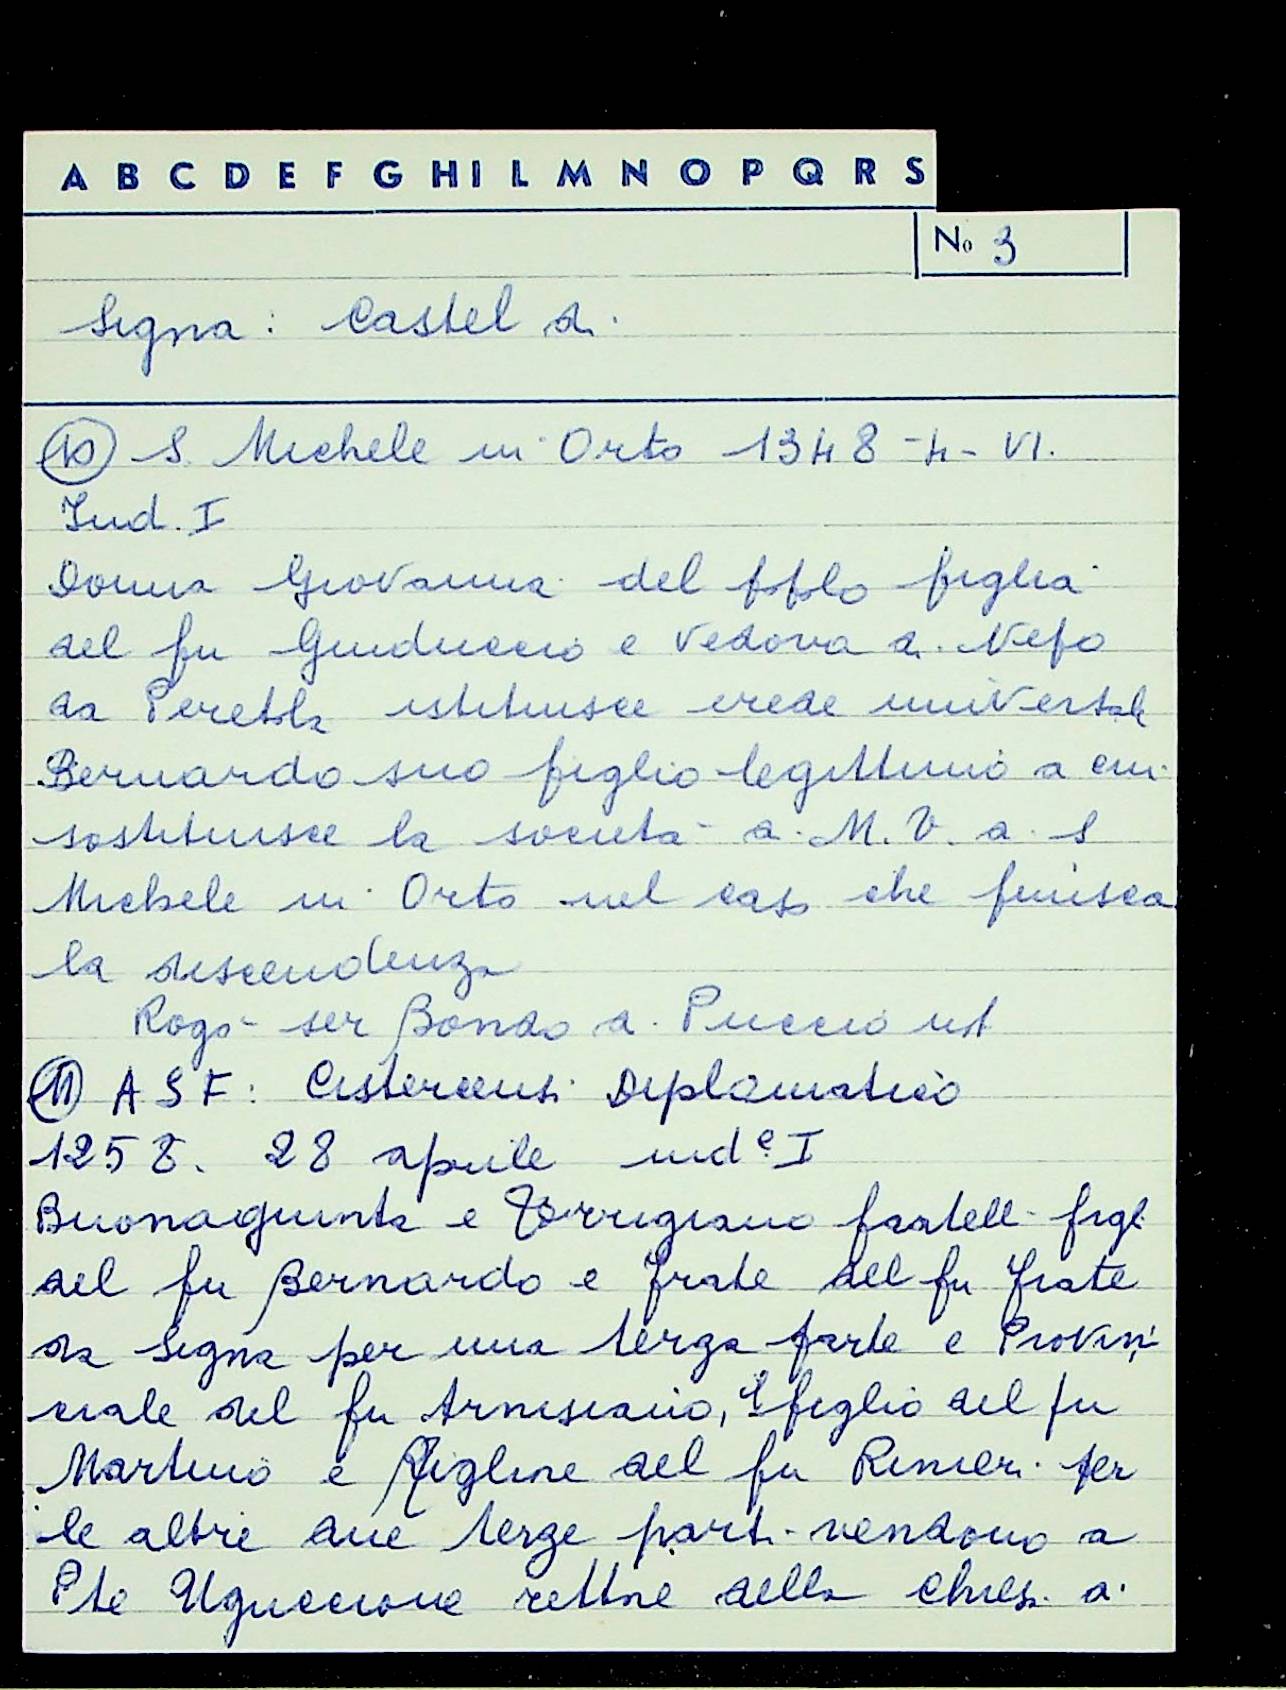 A B C D E F G H I L M N O P Q R S
No 3
Signa: Castel di
10 S. Michele in Orto 1348-4-VI.
Ind. I
Donna Giovanna del popolo figlia
del fu Guiduccio e vedova di Nepo
da Peretola istituisce erede universale
Bernardo suo figlio legittimo a cui
sostituisce la società di M. V. di S
Michele in Orto nel caso che finisca
la discendenza
Rogò ser Bondo di Puccio
11 ASF: Cistercensi Diplomatico
1258. 28 aprile ind.e I
Buonagiunta e Torrigiano fratelli figli
del fu Bernardo e frate del fu frate
da Signa per una terza parte e Provin
ciale del fu Arnisiano, figlio del fu
Martino e del fu Rinieri per
le altre due terze parti vendono a
Pte Uguccione rettore della chiesa di